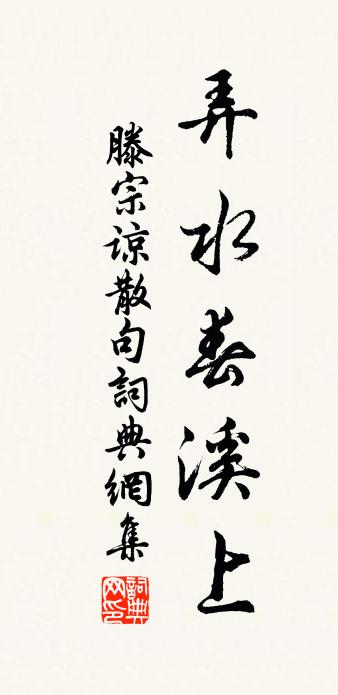 弄水春溪上
滕宗諒散句詞典網集
詞典网印